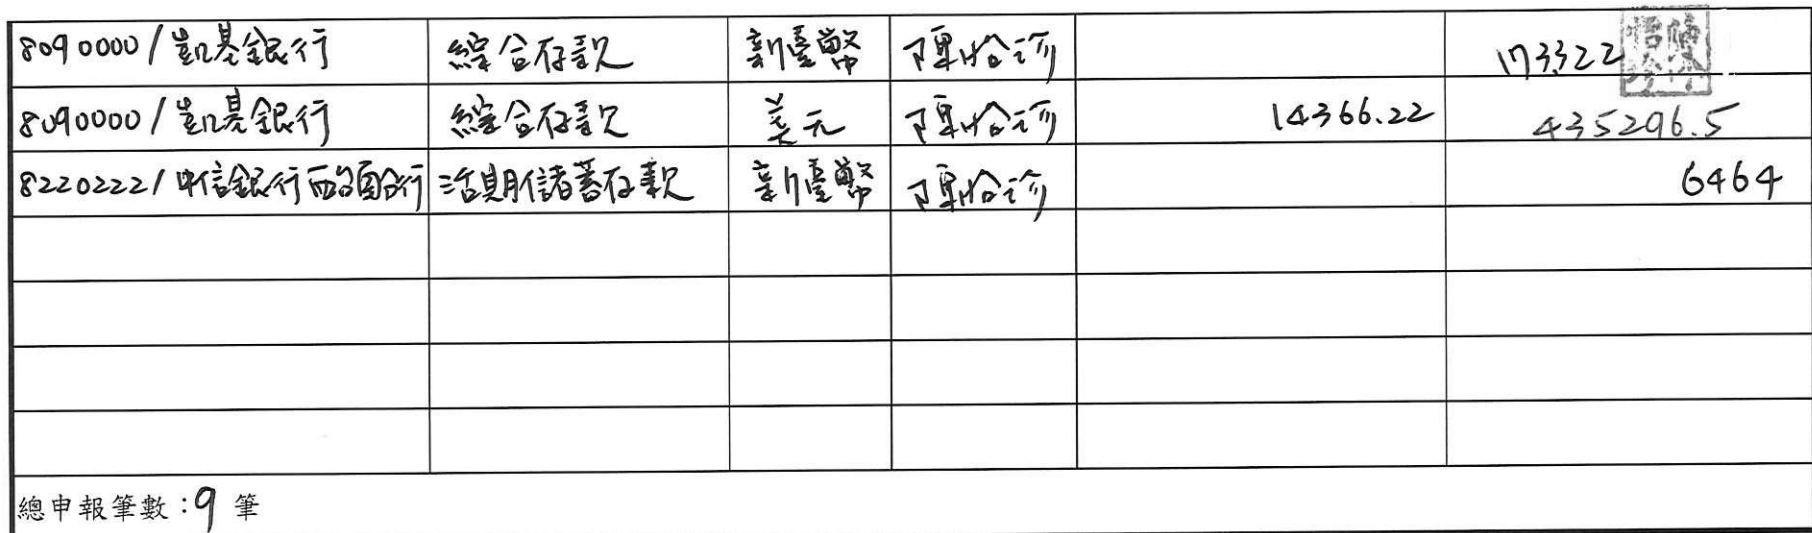 8090000/凱基銀行 綜合存款 新臺幣 陳怡珍 173322
8090000/凱基銀行 綜合存款 美元 陳怡珍 14366.22 435296.5
8220222/中信銀行西湖分行 活期儲蓄存款 新臺幣 陳怡珍 6464
總申報筆數:9 筆